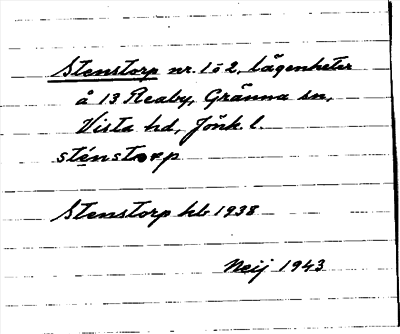 Stenstorp nr. 1 o 2, lägenheter
å 13 Reaby, Gränna sn,
Vista hd, Jönk. l.
sténstorp
Stenstorp hb 1938
Neij 1943